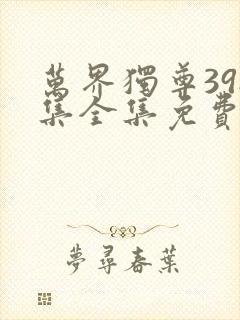 萬界獨尊39
集全集免費
夢尋春葉